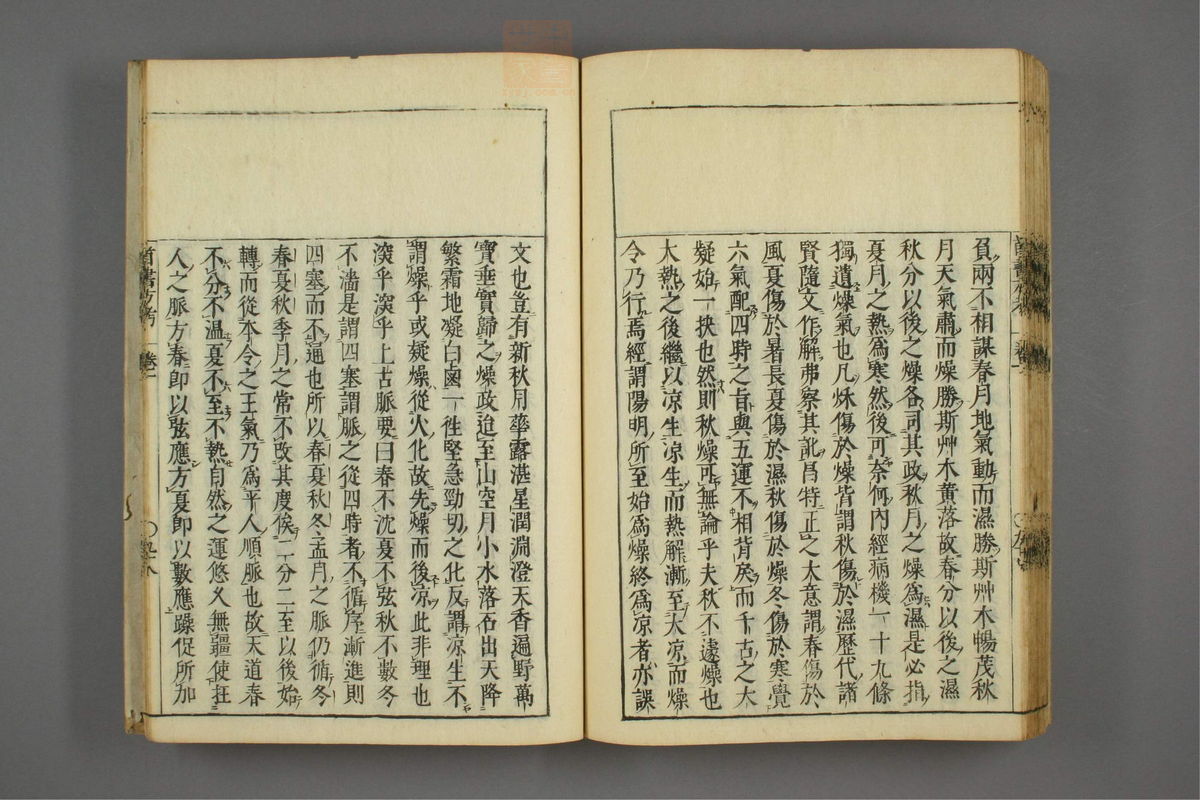 負兩不相謀春月地氣動而濕勝斯艸木暢茂秋
月天氣肅而燥勝斯艸木黄落故春分以後之濕
秋分以後之燥各司其政秋月之燥爲濕是必指
夏月之熱爲寒然後可奈何內經病機一十九條
獨遺燥氣也凡秋傷於燥皆謂秋傷於濕歷代諸
賢隨文作解弗察其訛昌特正之大意謂春傷於
風夏傷於暑長夏傷於濕秋傷於燥冬傷於寒覺
六氣配四時之旨與五運不相背戾而千古之大
疑始一抉也然則秋燥可無論乎夫秋不遽燥也
大熱之後繼以凉生凉生而熱解漸至大凉而燥
令乃行焉經謂陽明所至始爲燥終爲凉者亦誤
文也豈有新秋月華露湛星潤淵澄天香遍野萬
寶垂實歸之燥政迨至山空月小水落石出天降
繁霜地凝白鹵一徃堅急勁切之化反謂凉生不
謂燥乎或疑燥從火化故先燥而後凉此非理也
深乎深乎上古脉要曰春不沈夏不弦秋不數冬
不濇是謂四塞謂脉之從四時者不循序漸進則
四塞而不通也所以春夏秋冬孟月之脉仍循冬
春夏秋季月之常不改其度俟二分二至以後始
轉而從本令之王氣乃爲平人順脉也故天道春
不分不温夏不至不熱自然之運悠久無疆使在
人之脉方春即以弦應方夏即以數應躁促所加